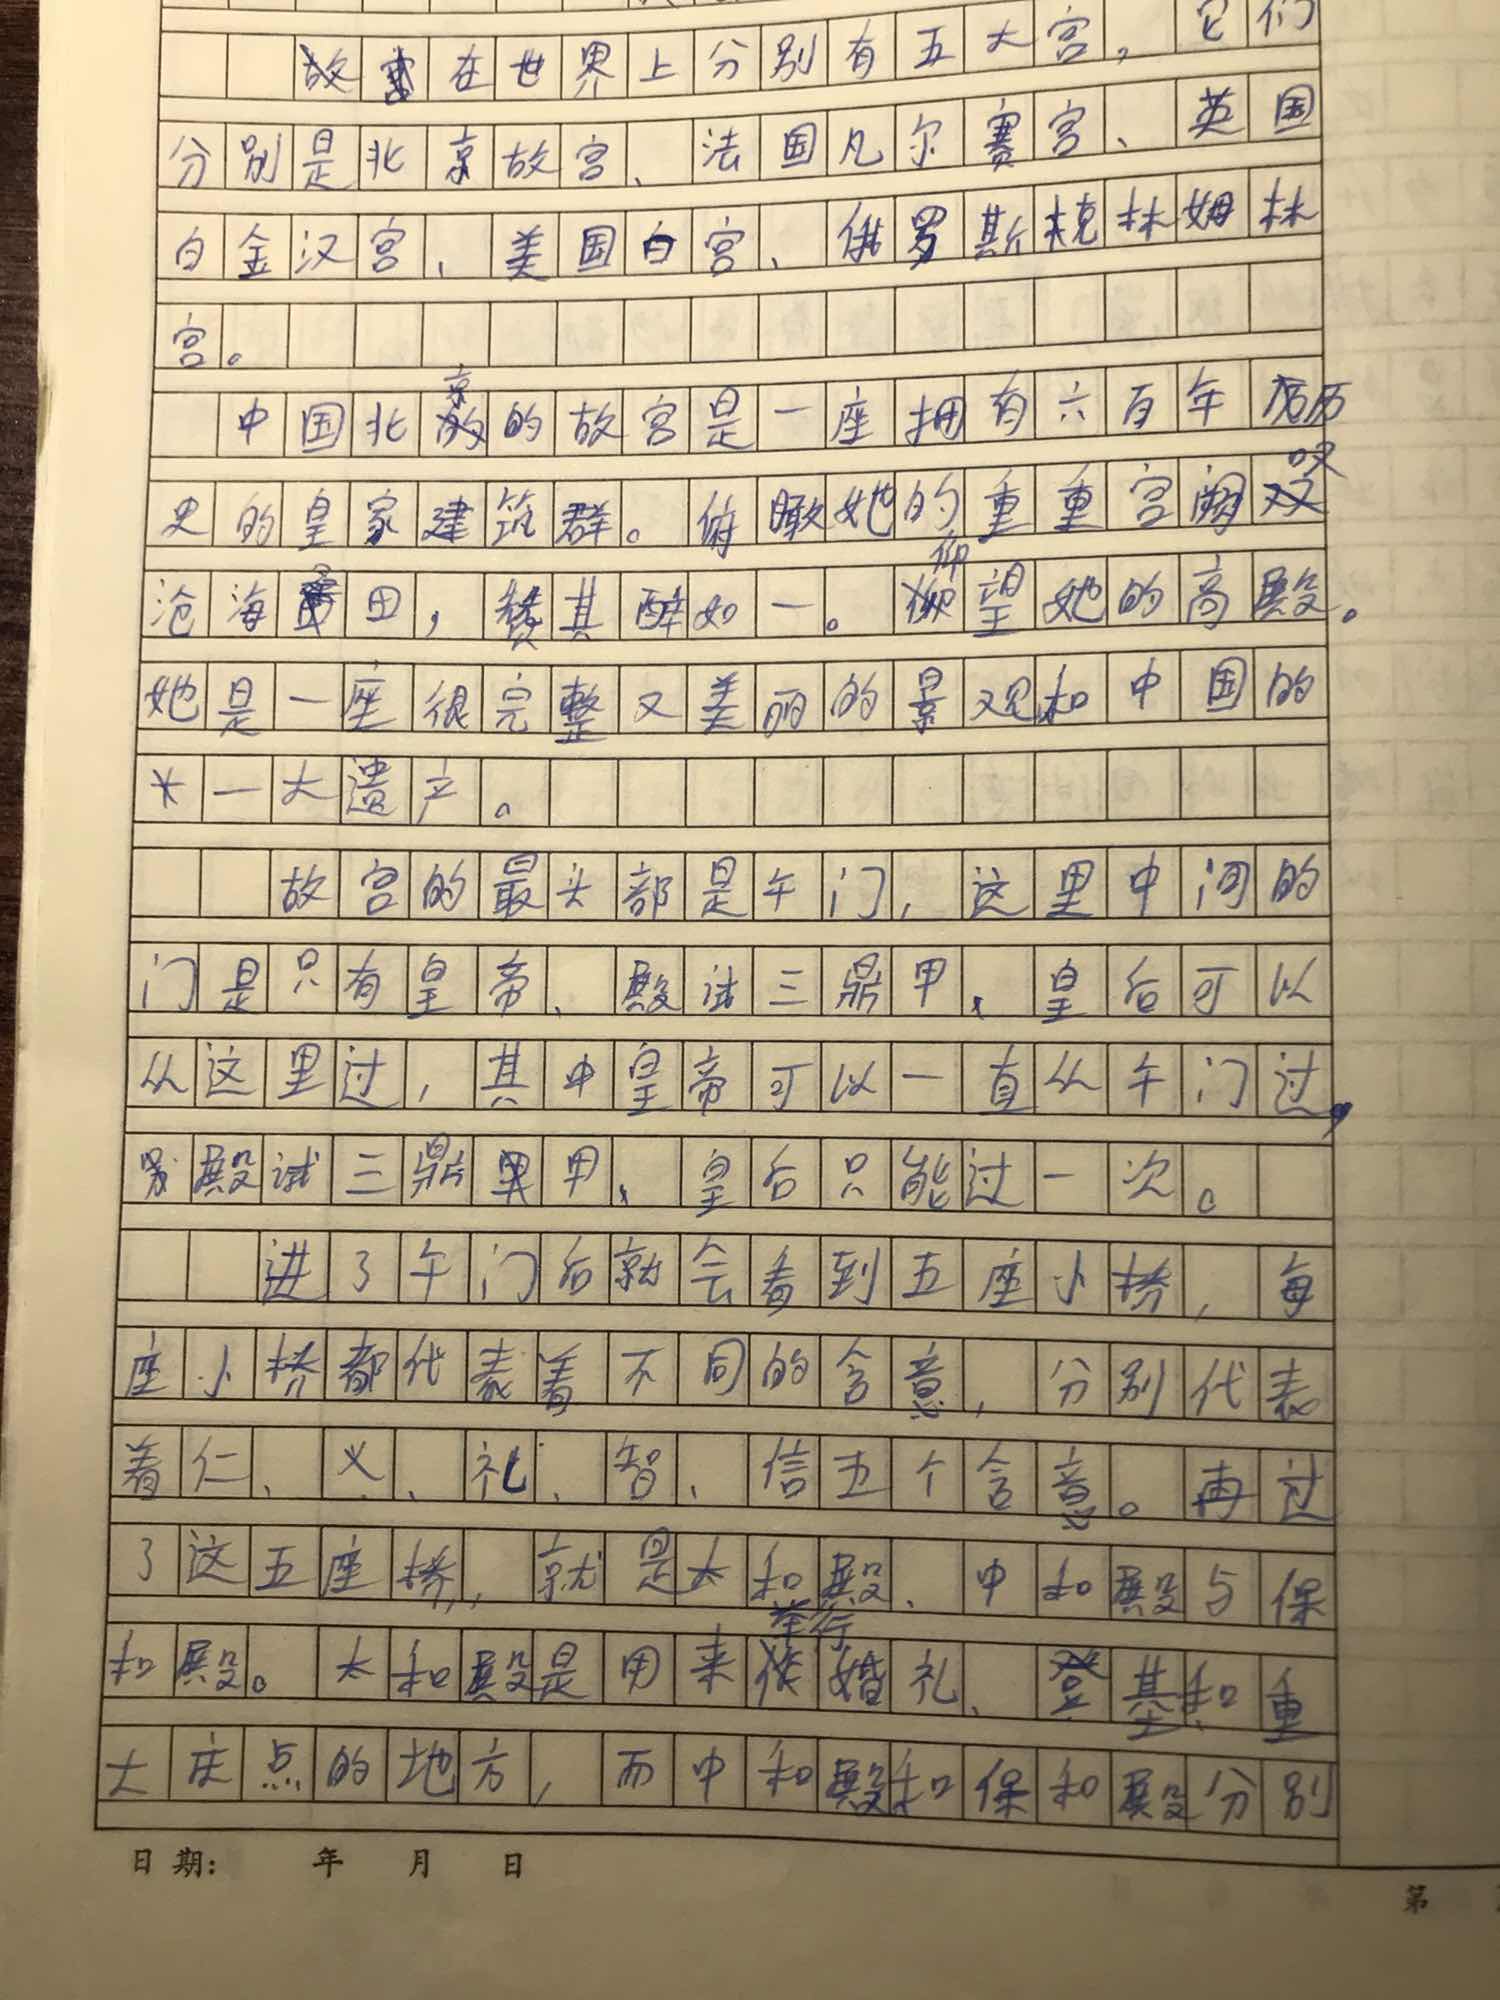 故宫在世界上分别有五大宫，它们
分别是北京故宫、法国凡尔赛宫、英国
白金汉宫、美国白宫、俄罗斯克林姆林
宫。
中国北京的故宫是一座拥有六百年历
史的皇家建筑群。俯瞰她的重重宫阙叹
沧海田，赞其醉如一。仰望她的高殿。
她是一座很完整又美丽的景观和中国的
一大遗产。
故宫的最头部是午门，这里中间的
门是只有皇帝、殿试三鼎甲、皇后可以
从这里过，其中皇帝可以一直从午门过，
殿试三鼎甲、皇后只能过一次。
进了午门后就会看到五座小桥，每
座小桥都代表着不同的含意，分别代表
着仁、义、礼、智、信五个含意。再过
了这五座桥，就是太和殿、中和殿与保
和殿。太和殿是用来举行婚礼、登基和重
大庆点的地方，而中和殿和保和殿分别
日期： 年 月 日
第